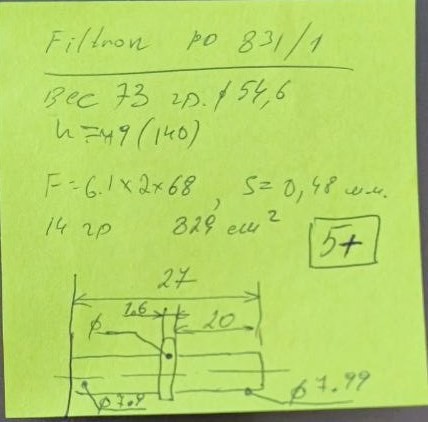 Filtron PP 831/1
Вес 73 гр. ∅54,6
h=49(140)
F=6.1×2×68, S=0,48 мм.
14 гр 829 cm²
5+
27
1.6
20
∅
∅7.9
∅7.99